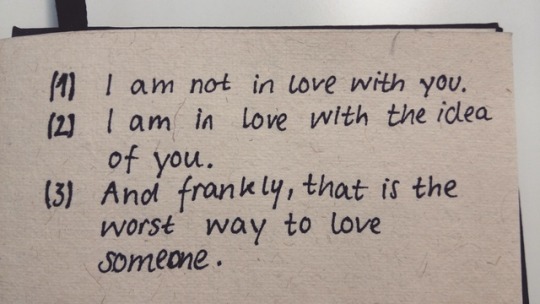 (1) I am not in love with you.
(2) I am in love with the idea
of you.
(3) And frankly, that is the
worst way to love
someone.